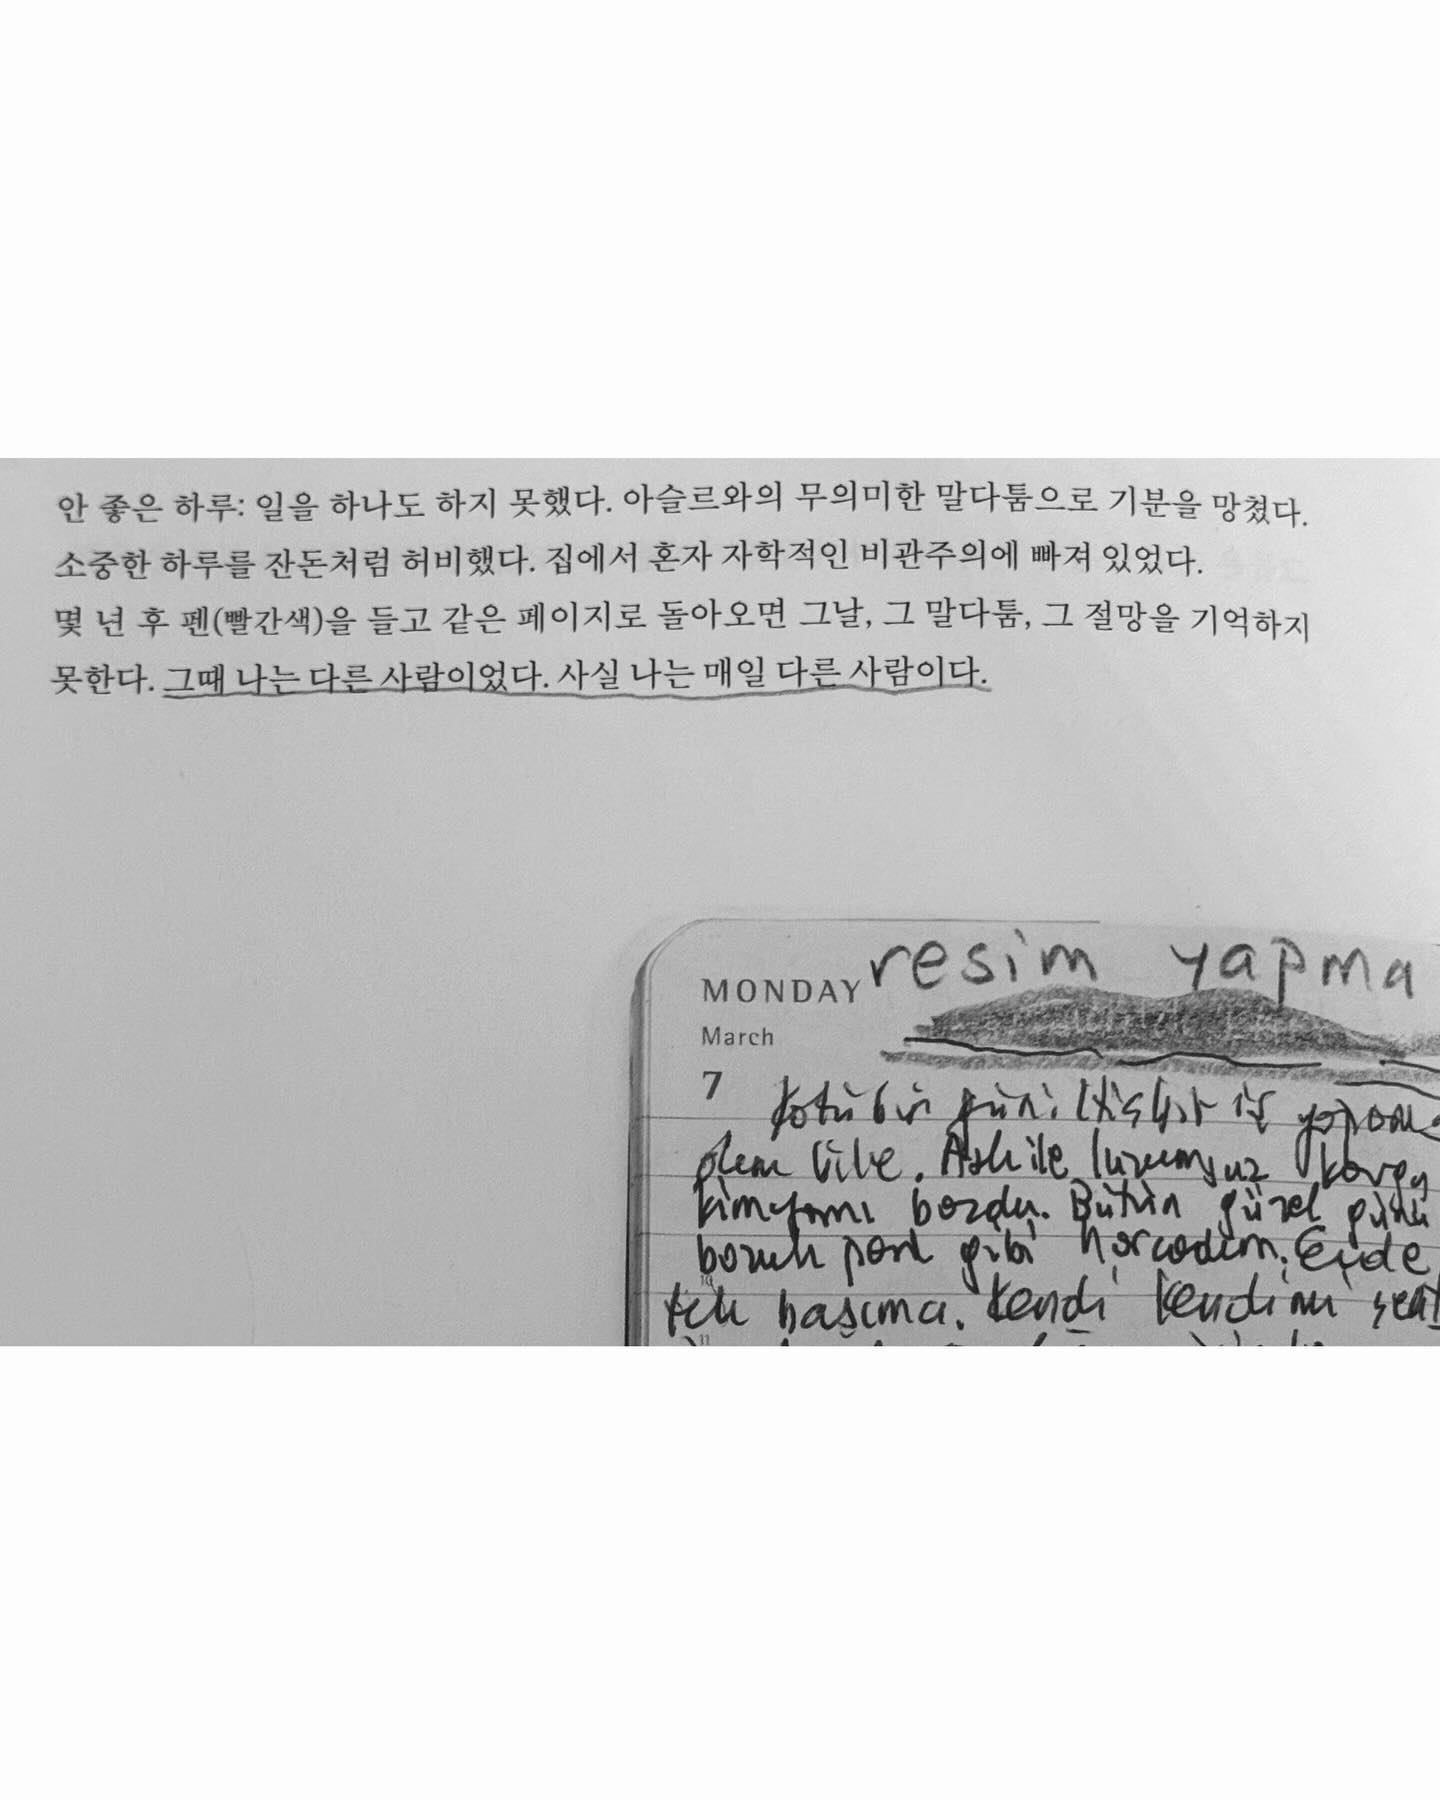 안 좋은 하루: 일을 하나도 하지 못했다. 아슬르와의 무의미한 말다툼으로 기분을 망쳤다.
소중한 하루를 잔돈처럼 허비했다. 집에서 혼자 자학적인 비관주의에 빠져 있었다.
몇 년 후 펜(빨간색)을 들고 같은 페이지로 돌아오면 그날, 그 말다툼, 그 절망을 기억하지
못한다. 그때 나는 다른 사람이었다. 사실 나는 매일 다른 사람이다.
MONDAY resim yapma
March
7
Kötü bir gün. Hiçbir iş
bozdu. Bütün güzel günü
bozuk para gibi harcadım. Evde
tek başıma. Kendi kendimi
10
11